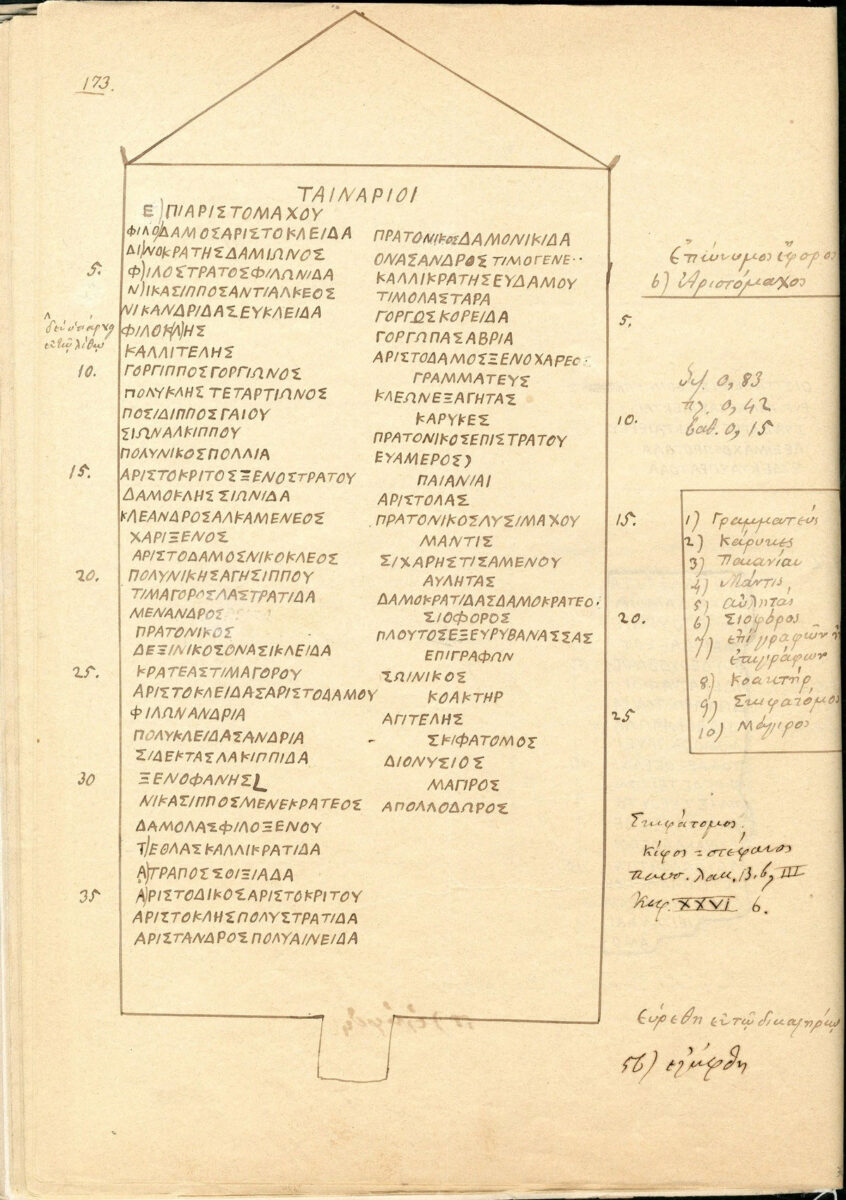 173.
ΤΑΙΝΑΡΙΟΙ
Ε)ΠΙΑΡΙΣΤΟΜΑΧΟΥ
ΦΙΛΟΔΑΜΟΣΑΡΙΣΤΟΚΛΕΙΔΑ
ΔΙ)ΝΟΚΡΑΤΗΣΔΑΜΙΩΝΟΣ
5.
Φ)ΙΛΟΣΤΡΑΤΟΣΦΙΛΩΝΙΔΑ
Ν)ΙΚΑΣΙΠΠΟΣΑΝΤΙΑΛΚΕΟΣ
ΝΙΚΑΝΔΡΙΔΑΣΕΥΚΛΕΙΔΑ
ΦΙΛΟΚΛΗΣ
ΚΑΛΛΙΤΕΛΗΣ
10.
ΓΟΡΓΙΠΠΟΣΓΟΡΓΙΩΝΟΣ
ΠΟΛΥΚΛΗΣΤΕΤΑΡΤΙΩΝΟΣ
ΠΟΣΙΔΙΠΠΟΣΓΑΙΟΥ
ΣΙΩΝΑΛΚΙΠΠΟΥ
ΠΟΛΥΝΙΚΟΣΠΟΛΛΙΑ
15.
ΑΡΙΣΤΟΚΡΙΤΟΣΞΕΝΟΣΤΡΑΤΟΥ
ΔΑΜΟΚΛΗΣΣΙΩΝΙΔΑ
ΚΛΕΑΝΔΡΟΣΑΛΚΑΜΕΝΕΟΣ
ΧΑΡΙΞΕΝΟΣ
ΑΡΙΣΤΟΔΑΜΟΣΝΙΚΟΚΛΕΟΣ
20.
ΠΟΛΥΝΙΚΗΣΑΓΗΣΙΠΠΟΥ
ΤΙΜΑΓΟΡΟΣΛΑΣΤΡΑΤΙΔΑ
ΜΕΝΑΝΔΡΟΣ
ΠΡΑΤΟΝΙΚΟΣ
ΔΕΞΙΝΙΚΟΣΟΝΑΣΙΚΛΕΙΔΑ
25.
ΚΡΑΤΕΑΣΤΙΜΑΓΟΡΟΥ
ΑΡΙΣΤΟΚΛΕΙΔΑΣΑΡΙΣΤΟΔΑΜΟΥ
ΦΙΛΩΝΑΝΔΡΙΑ
ΠΟΛΥΚΛΕΙΔΑΣΑΝΔΡΙΑ
ΣΙΔΕΚΤΑΣΛΑΚΙΠΠΙΔΑ
30
ΞΕΝΟΦΑΝΗΣ
ΝΙΚΑΣΙΠΠΟΣΜΕΝΕΚΡΑΤΕΟΣ
ΔΑΜΟΛΑΣΦΙΛΟΞΕΝΟΥ
Τ)ΕΘΛΑΣΚΑΛΛΙΚΡΑΤΙΔΑ
Α)ΤΡΑΠΟΣΣΟΙΞΙΑΔΑ
35
Α)ΡΙΣΤΟΔΙΚΟΣΑΡΙΣΤΟΚΡΙΤΟΥ
ΑΡΙΣΤΟΚΛΗΣΠΟΛΥΣΤΡΑΤΙΔΑ
ΑΡΙΣΤΑΝΔΡΟΣΠΟΛΥΑΙΝΕΙΔΑ
ΠΡΑΤΟΝΙΚΟΣΔΑΜΟΝΙΚΙΔΑ
ΟΝΑΣΑΝΔΡΟΣΤΙΜΟΓΕΝΕ··
ΚΑΛΛΙΚΡΑΤΗΣΕΥΔΑΜΟΥ
ΤΙΜΟΛΑΣΤΑΡΑ
ΓΟΡΓΩΣΚΟΡΕΙΔΑ
5.
ΓΟΡΓΩΠΑΣΑΒΡΙΑ
ΑΡΙΣΤΟΔΑΜΟΣΞΕΝΟΧΑΡΕΟΣ
ΓΡΑΜΜΑΤΕΥΣ
ΚΛΕΩΝΕΞΑΓΗΤΑΣ
ΚΑΡΥΚΕΣ
10.
ΠΡΑΤΟΝΙΚΟΣΕΠΙΣΤΡΑΤΟΥ
ΕΥΑΜΕΡΟΣ)
ΠΑΙΑΝΙΑΙ
ΑΡΙΣΤΟΛΑΣ
ΠΡΑΤΟΝΙΚΟΣΛΥΣΙΜΑΧΟΥ
15.
ΜΑΝΤΙΣ
ΣΙΧΑΡΗΣΤΙΣΑΜΕΝΟΥ
ΑΥΛΗΤΑΣ
ΔΑΜΟΚΡΑΤΙΔΑΣΔΑΜΟΚΡΑΤΕΟ·
ΣΙΟΦΟΡΟΣ
20.
ΠΛΟΥΤΟΣΕΞΕΥΡΥΒΑΝΑΣΣΑΣ
ΕΠΙΓΡΑΦΩΝ
ΣΩΙΝΙΚΟΣ
ΚΟΑΚΤΗΡ
ΑΓΙΤΕΛΗΣ
25
ΣΚΙΦΑΤΟΜΟΣ
ΔΙΟΝΥΣΙΟΣ
ΜΑΓΙΡΟΣ
ΑΠΟΛΛΟΔΩΡΟΣ
Ἐπώνυμος ἔφορος
6) Ἀριστόμαχος
ὕψ. 0,83
πλ. 0,42
βαθ. 0,15
1) Γραμματεύς
2) Κάρυκες
3) Παιανίαι
4) Μάντις
5) αὐλητάς
6) Σιοφόρος
7) ἐπιγραφῶν ἢ
ἐπιγράφων
8) Κοακτήρ
9) Σκιφατόμος
10) Μάγιρος
Σκιφάτομος,
κίφος = στέφανος
παυσ. Λακ. Β. 6, III
Κεφ. XXVI 6.
Εὑρέθη ἐν τῷ
56) ἐλήφθη